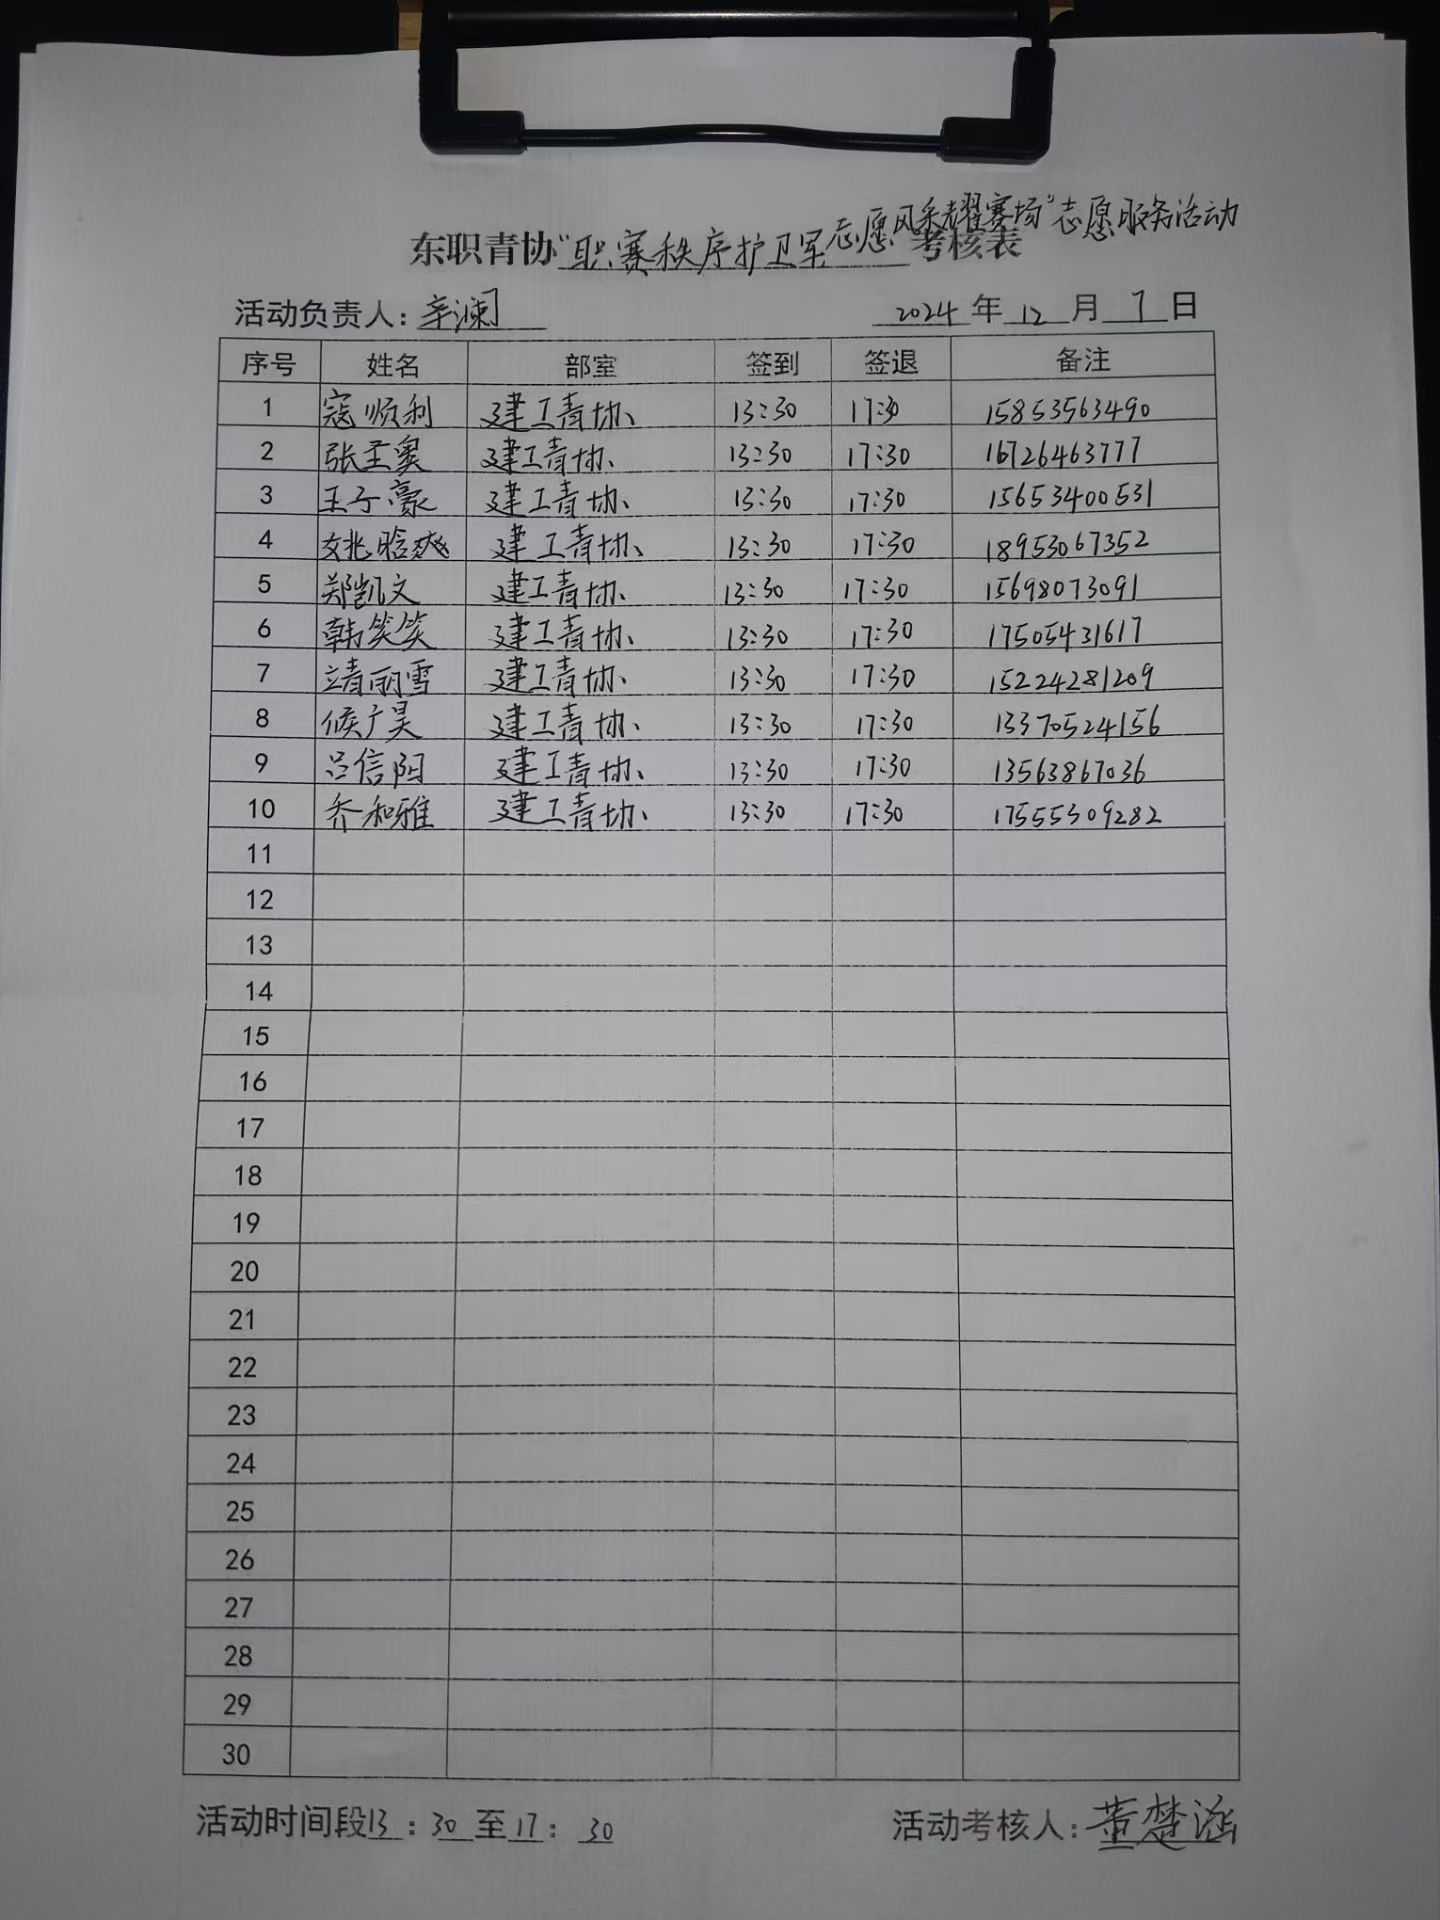 东职青协“职赛秩序护卫军志愿风采耀赛场”志愿服务活动考核表
活动负责人：辛澜 2024年12月7日
序号 姓名 部室 签到 签退 备注
1 寇顺利 建工青协 13:30 17:30 15853563490
2 张圣奥 建工青协 13:30 17:30 16726463777
3 王子豪 建工青协 13:30 17:30 15653400531
4 姚晗爽 建工青协 13:30 17:30 18953067352
5 郑凯文 建工青协 13:30 17:30 15698073091
6 韩笑笑 建工青协 13:30 17:30 17505431617
7 靖丽雪 建工青协 13:30 17:30 15224281209
8 候广昊 建工青协 13:30 17:30 13370524156
9 吕信阳 建工青协 13:30 17:30 13563867036
10 乔和雅 建工青协 13:30 17:30 17555309282
11
12
13
14
15
16
17
18
19
20
21
22
23
24
25
26
27
28
29
30
活动时间段13：30至17：30 活动考核人：董楚涵